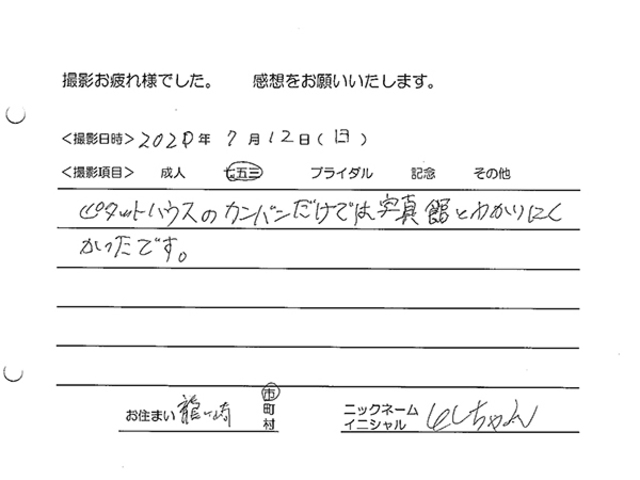 撮影お疲れ様でした。 感想をお願いいたします。
<撮影日時> 2020年 7月 12日(日)
<撮影項目> 成人 七五三 ブライダル 記念 その他
ピタットハウスのカンバンだけでは写真館とわかりにく
かったです。
お住まい 龍ヶ崎 市 町 村
ニックネーム イニシャル しちゃん